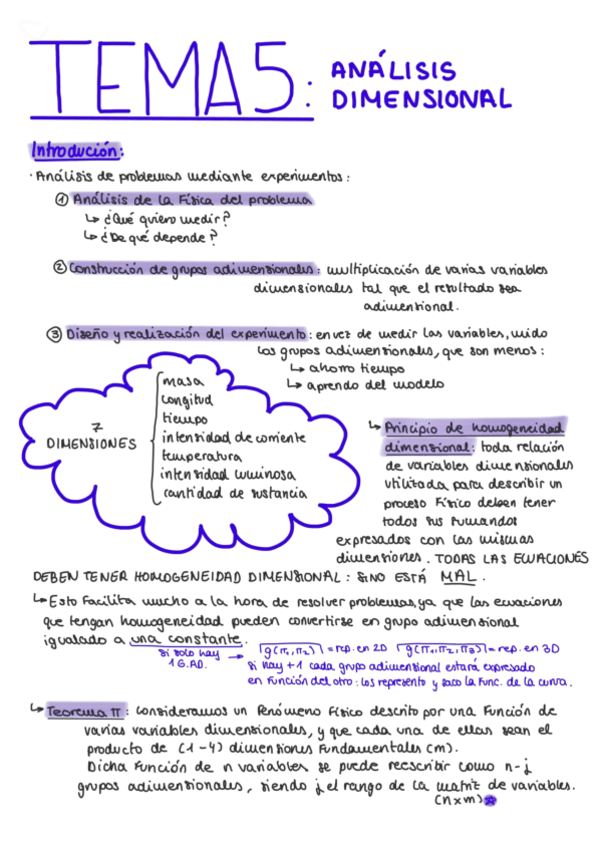 TEMA5: ANÁLISIS
DIMENSIONAL
Introdución:
· Análisis de problemas mediante experimentos:
① Análisis de la Física del problema
↳ ¿Qué quiero medir?
↳ ¿De qué depende?
② Construcción de grupos adimensionales: multiplicación de varias variables
dimensionales tal que el resultado sea
adimentional.
③ Diseño y realización del experimento: en vez de medir las variables, mido
los grupos adimensionales, que son menos:
↳ ahorro tiempo
↳ aprendo del modelo
7
DIMENSIONES
masa
longitud
tiempo
intensidad de corriente
temperatura
intensidad luminosa
cantidad de sustancia
↳ Principio de homogeneidad
dimensional: toda relación
de variables dimensionales
utilitada para describir un
proceso Físico deben tener
todos sus sumandos
expresados con las mismas
dimensiones. TODAS LAS ECUACIONES
DEBEN TENER HOMOGENEIDAD DIMENSIONAL: SINO ESTÁ MAL.
↳ Esto Facilita mucho a la hora de resolver problemas, ya que las ecuaciones
que tengan homogeneidad pueden convertirse en grupo adimensional
igualado a una constante.
si solo hay
1 G.AD.
→ g(π₁,π₂) = rep. en 2D g(π₁,π₂,π₃) = rep. en 3D
si hay +1 cada grupo adimensional estará expresado
en Función del otro: los represento y saco la Func. de la curva.
↳ Teorema π: consideramos un Fenómeno Físico descrito por una Función de
varias variables dimensionales, y que cada una de ellas sean el
producto de (1-4) dimensiones Fundamentales (m).
Dicha Función de n variables se puede reescribir como n-j
grupos adimensionales, siendo j el rango de la matriz de variables.
(n×m)